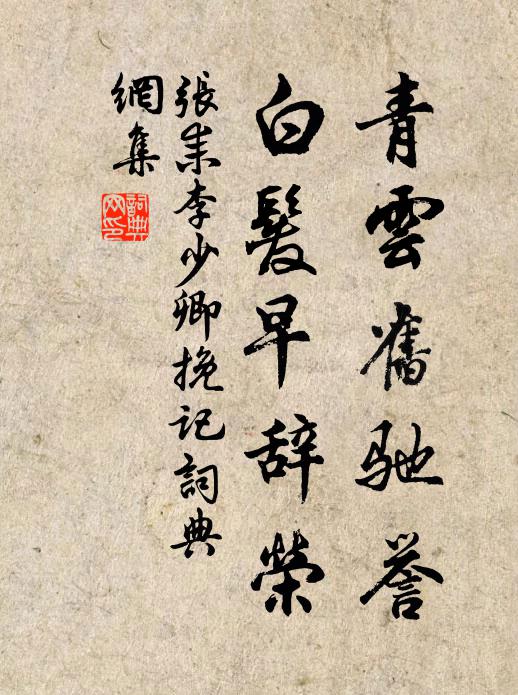 青雲舊馳譽
白髮早辞榮
張耒李少卿挽記詞典
網集
詞典
网印